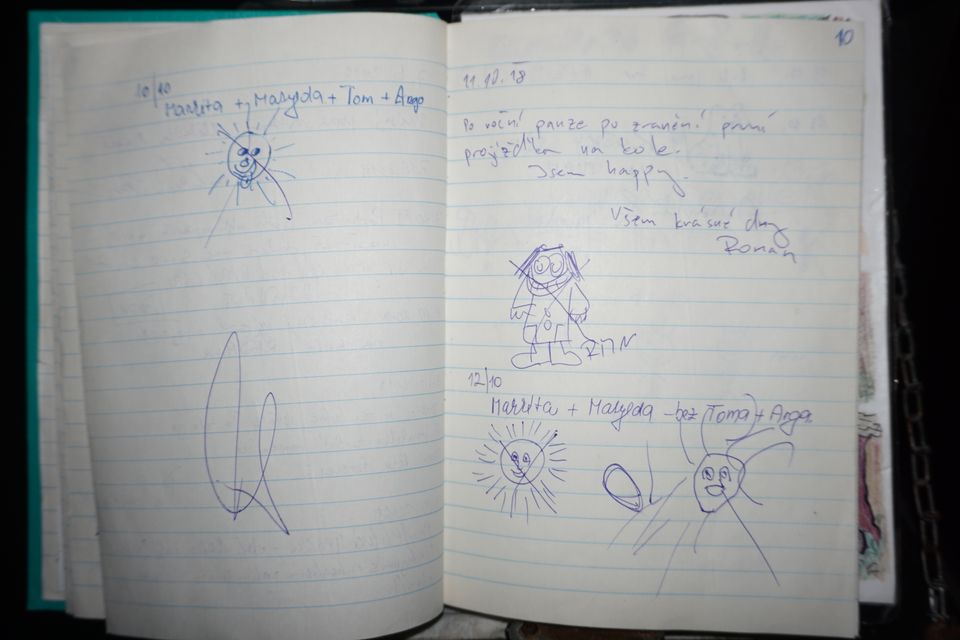 10/10
Markéta + Matylda + Tom + Argo
10
11.10.18
Po roční pauze po zranění první
projížďka na kole.
Jsem happy.
Všem krásné dny
Roman
RMN
12/10
Markéta + Matylda - bez Toma + Arga